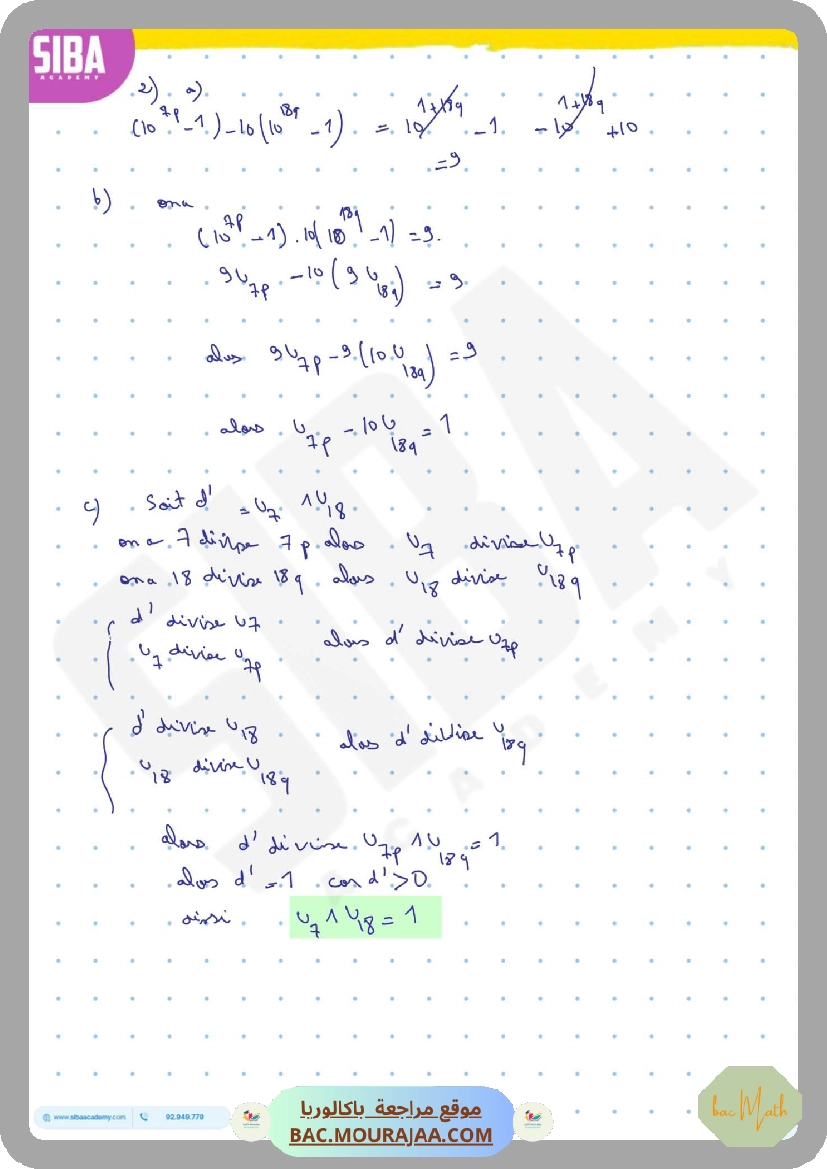 SIBA
ACADEMY
2) a)
(10^{7p} - 1) - 10(10^{18q} - 1) = 10^{1+18q} - 1 - 10^{1+18q} + 10
= 9
b) on a
(10^{7p} - 1) . 10(10^{18q} - 1) = 9.
9U_{7p} - 10(9U_{18q}) = 9
alors 9U_{7p} - 9(10U_{18q}) = 9
alors U_{7p} - 10U_{18q} = 1
c) Soit d' = U_7 ∧ U_{18}
on a 7 divise 7p alors U_7 divise U_{7p}
on a 18 divise 18q alors U_{18} divise U_{18q}
d' divise U_7
U_7 divise U_{7p}
alors d' divise U_{7p}
d' divise U_{18}
U_{18} divise U_{18q}
alors d' divise U_{18q}
alors d' divise U_{7p} ∧ U_{18q} = 1
alors d' = 1 car d' > 0
ainsi U_7 ∧ U_{18} = 1
SIBA
ACADEMY
www.sibaacademy.com
92.949.779
موقع مراجعة باكالوريا
BAC.MOURAJAA.COM
bac Math